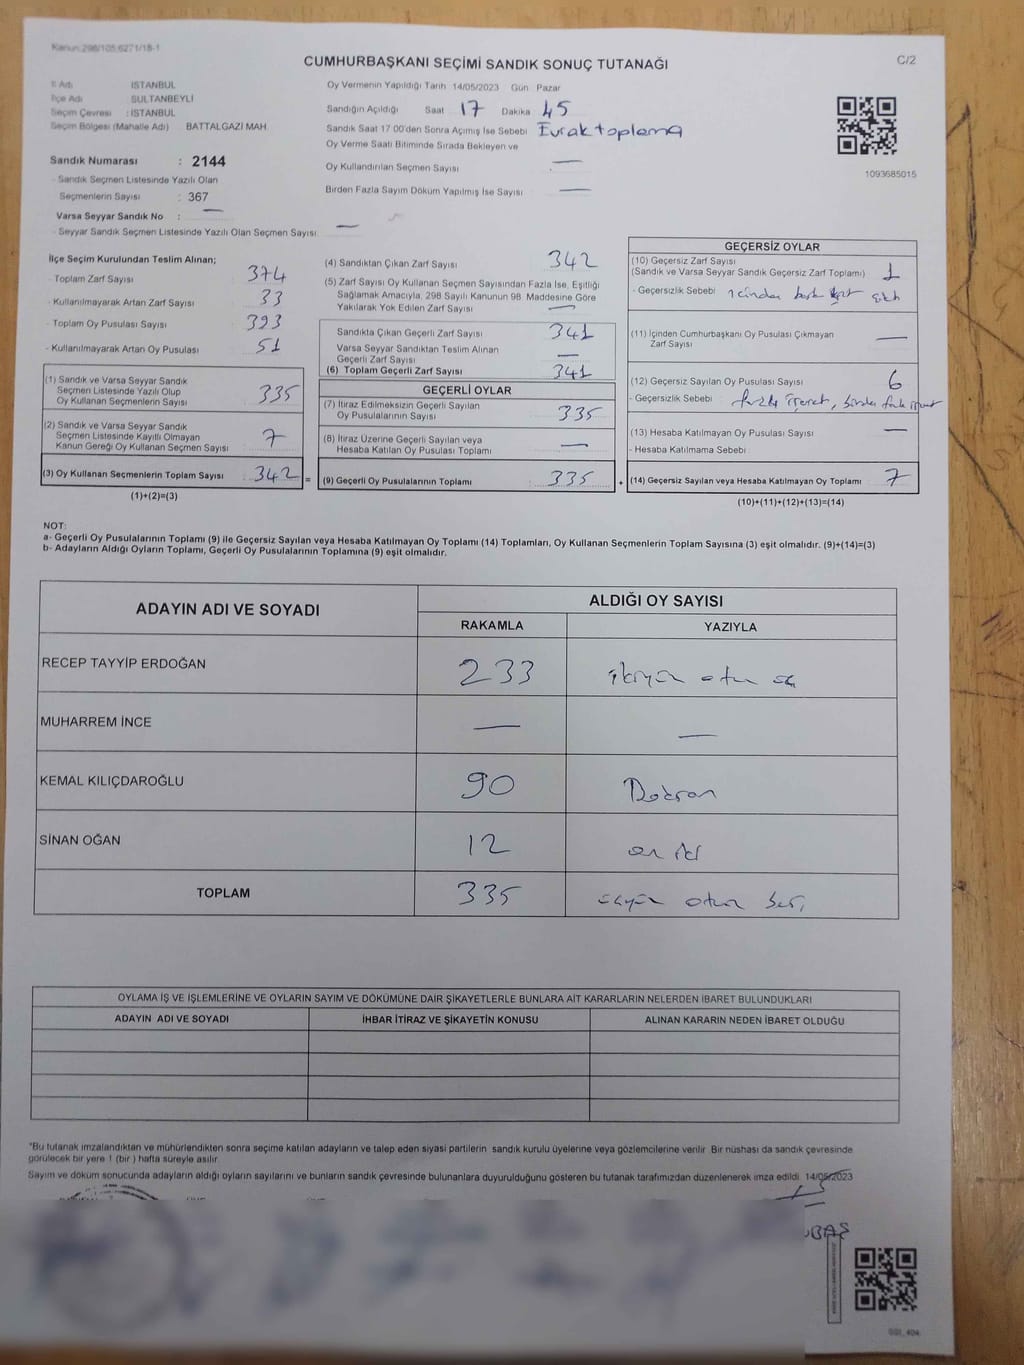 Kanun:298/105,6271/18-1
CUMHURBAŞKANI SEÇİMİ SANDIK SONUÇ TUTANAĞI
C/2
İl Adı İSTANBUL
İlçe Adı SULTANBEYLİ
Seçim Çevresi : İSTANBUL
Seçim Bölgesi (Mahalle Adı) BATTALGAZİ MAH.
Sandık Numarası : 2144
- Sandık Seçmen Listesinde Yazılı Olan
Seçmenlerin Sayısı : 367
Varsa Seyyar Sandık No : —
- Seyyar Sandık Seçmen Listesinde Yazılı Olan Seçmen Sayısı: —
Oy Vermenin Yapıldığı Tarih 14/05/2023 Gün Pazar
Sandığın Açıldığı Saat 17 Dakika 45
Sandık Saat 17 00'den Sonra Açımış İse Sebebi Evrak toplama
Oy Verme Saati Bitiminde Sırada Bekleyen ve
Oy Kullandırılan Seçmen Sayısı —
Birden Fazla Sayım Döküm Yapılmış İse Sayısı —
1093685015
İlçe Seçim Kurulundan Teslim Alınan;
- Toplam Zarf Sayısı 374
- Kullanılmayarak Artan Zarf Sayısı 33
- Toplam Oy Pusulası Sayısı 393
- Kullanılmayarak Artan Oy Pusulası 51
(1) Sandık ve Varsa Seyyar Sandık
Seçmen Listesinde Yazılı Olup
Oy Kullanan Seçmenlerin Sayısı 335
(2) Sandık ve Varsa Seyyar Sandık
Seçmen Listesinde Kayıllı Olmayan
Kanun Gereği Oy Kullanan Seçmen Sayısı 7
(3) Oy Kullanan Seçmenlerin Toplam Sayısı 342 =
(1)+(2)=(3)
(4) Sandıktan Çıkan Zarf Sayısı 342
(5) Zarf Sayısı Oy Kullanan Seçmen Sayısından Fazla İse, Eşitliği
Sağlamak Amacıyla, 298 Sayılı Kanunun 98. Maddesine Göre
Yakılarak Yok Edilen Zarf Sayısı —
Sandıkta Çıkan Geçerli Zarf Sayısı 341
Varsa Seyyar Sandıktan Teslim Alınan
Geçerli Zarf Sayısı —
(6) Toplam Geçerli Zarf Sayısı 341
GEÇERLİ OYLAR
(7) İtiraz Edilmeksizin Geçerli Sayılan
Oy Pusulalarının Sayısı 335
(8) İtiraz Üzerine Geçerli Sayılan veya
Hesaba Katılan Oy Pusulası Toplamı —
(9) Geçerli Oy Pusulalarının Toplamı : 335 +
GEÇERSİZ OYLAR
(10) Geçersiz Zarf Sayısı
(Sandık ve Varsa Seyyar Sandık Geçersiz Zarf Toplamı) 1
- Geçersizlik Sebebi içinden
(11) İçinden Cumhurbaşkanı Oy Pusulası Çıkmayan
Zarf Sayısı —
(12) Geçersiz Sayılan Oy Pusulası Sayısı 6
- Geçersizlik Sebebi fazla işaret,
(13) Hesaba Katılmayan Oy Pusulası Sayısı —
- Hesaba Katılmama Sebebi
(14) Geçersiz Sayılan veya Hesaba Katılmayan Oy Toplamı 7
(10)+(11)+(12)+(13)=(14)
NOT:
a- Geçerli Oy Pusulalarının Toplamı (9) ile Geçersiz Sayılan veya Hesaba Katılmayan Oy Toplamı (14) Toplamları, Oy Kullanan Seçmenlerin Toplam Sayısına (3) eşit olmalıdır. (9)+(14)=(3)
b- Adayların Aldığı Oyların Toplamı, Geçerli Oy Pusulalarının Toplamına (9) eşit olmalıdır.
ADAYIN ADI VE SOYADI ALDIĞI OY SAYISI
RAKAMLA YAZIYLA
RECEP TAYYİP ERDOĞAN 233 ikiyüz otuz üç
MUHARREM İNCE — —
KEMAL KILIÇDAROĞLU 90 Doksan
SİNAN OĞAN 12 on iki
TOPLAM 335 üçyüz otuz beş
OYLAMA İŞ VE İŞLEMLERİNE VE OYLARIN SAYIM VE DÖKÜMÜNE DAİR ŞİKAYETLERLE BUNLARA AİT KARARLARIN NELERDEN İBARET BULUNDUKLARI
ADAYIN ADI VE SOYADI İHBAR İTİRAZ VE ŞİKAYETİN KONUSU ALINAN KARARIN NEDEN İBARET OLDUĞU
*Bu tutanak imzalandıktan ve mühürlendikten sonra seçime katılan adayların ve talep eden siyasi partilerin sandık kurulu üyelerine veya gözlemcilerine verilir. Bir nüshası da sandık çevresinde
görülecek bir yere 1 (bir) hafta süreyle asılır.
Sayım ve döküm sonucunda adayların aldığı oyların sayılarını ve bunların sandık çevresinde bulunanlara duyurulduğunu gösteren bu tutanak tarafımızdan düzenlenerek imza edildi. 14/05/2023